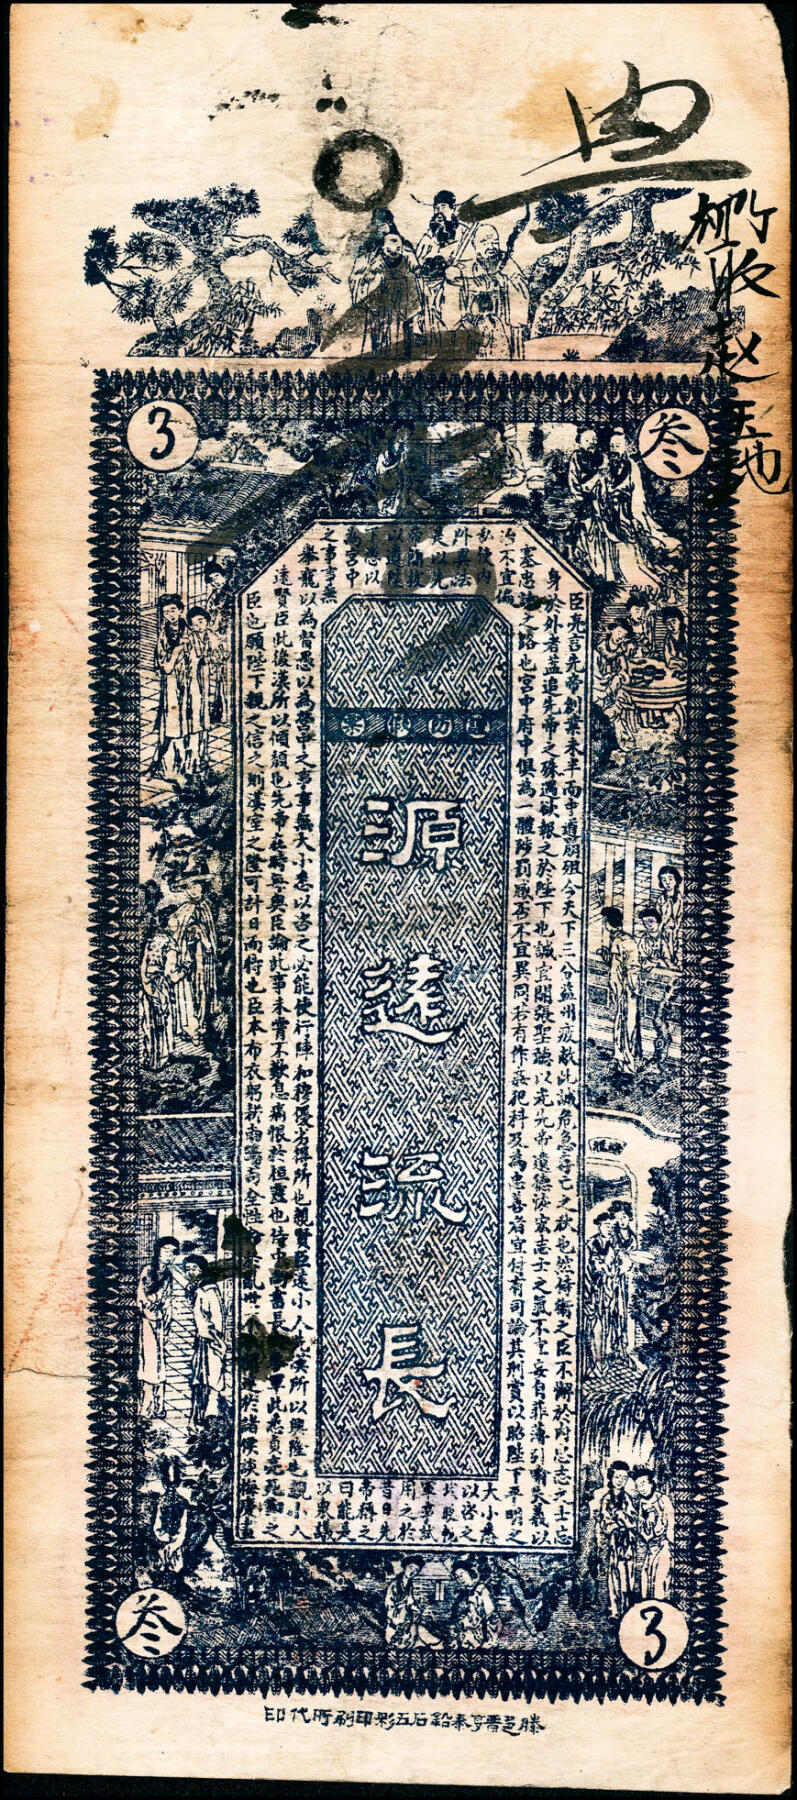 3
叁
臣亮言先帝創業未半而中道崩殂今天下三分益州疲敝此誠危急存亡之秋也然侍衛之臣不懈於內忠志之士忘
身於外者蓋追先帝之殊遇欲報之於陛下也誠宜開張聖聽以光先帝遺德恢宏志士之氣不宜妄自菲薄引喻失義以
塞忠諫之路也宮中府中俱為一體陟罰臧否不宜異同若有作奸犯科及為忠善者宜付有司論其刑賞以昭陛下平明之
治不宜偏
私使內
外異法
是以先
帝簡拔
以遺陛
下愚以
為宮中
之事事無
大小悉
以咨之
軍事試
用之於
昔日先
帝稱之
曰能是
以眾議
舉寵以為督愚以為營中之事事無大小悉以咨之必能使行陣和穆優劣得所也親賢臣遠小人此先漢所以興隆也親小人
遠賢臣此後漢所以傾頹也先帝在時每與臣論此事未嘗不歎息痛恨於桓靈也侍中尚書長參軍此悉貞亮死節之
臣也願陛下親之信之則漢室之隆可計日而待也臣本布衣躬耕南陽苟全性命亂世不達於諸侯
源遠流長
叁
3
滕邑晋亨泰鉛石五彩印刷所代印
收赵天地